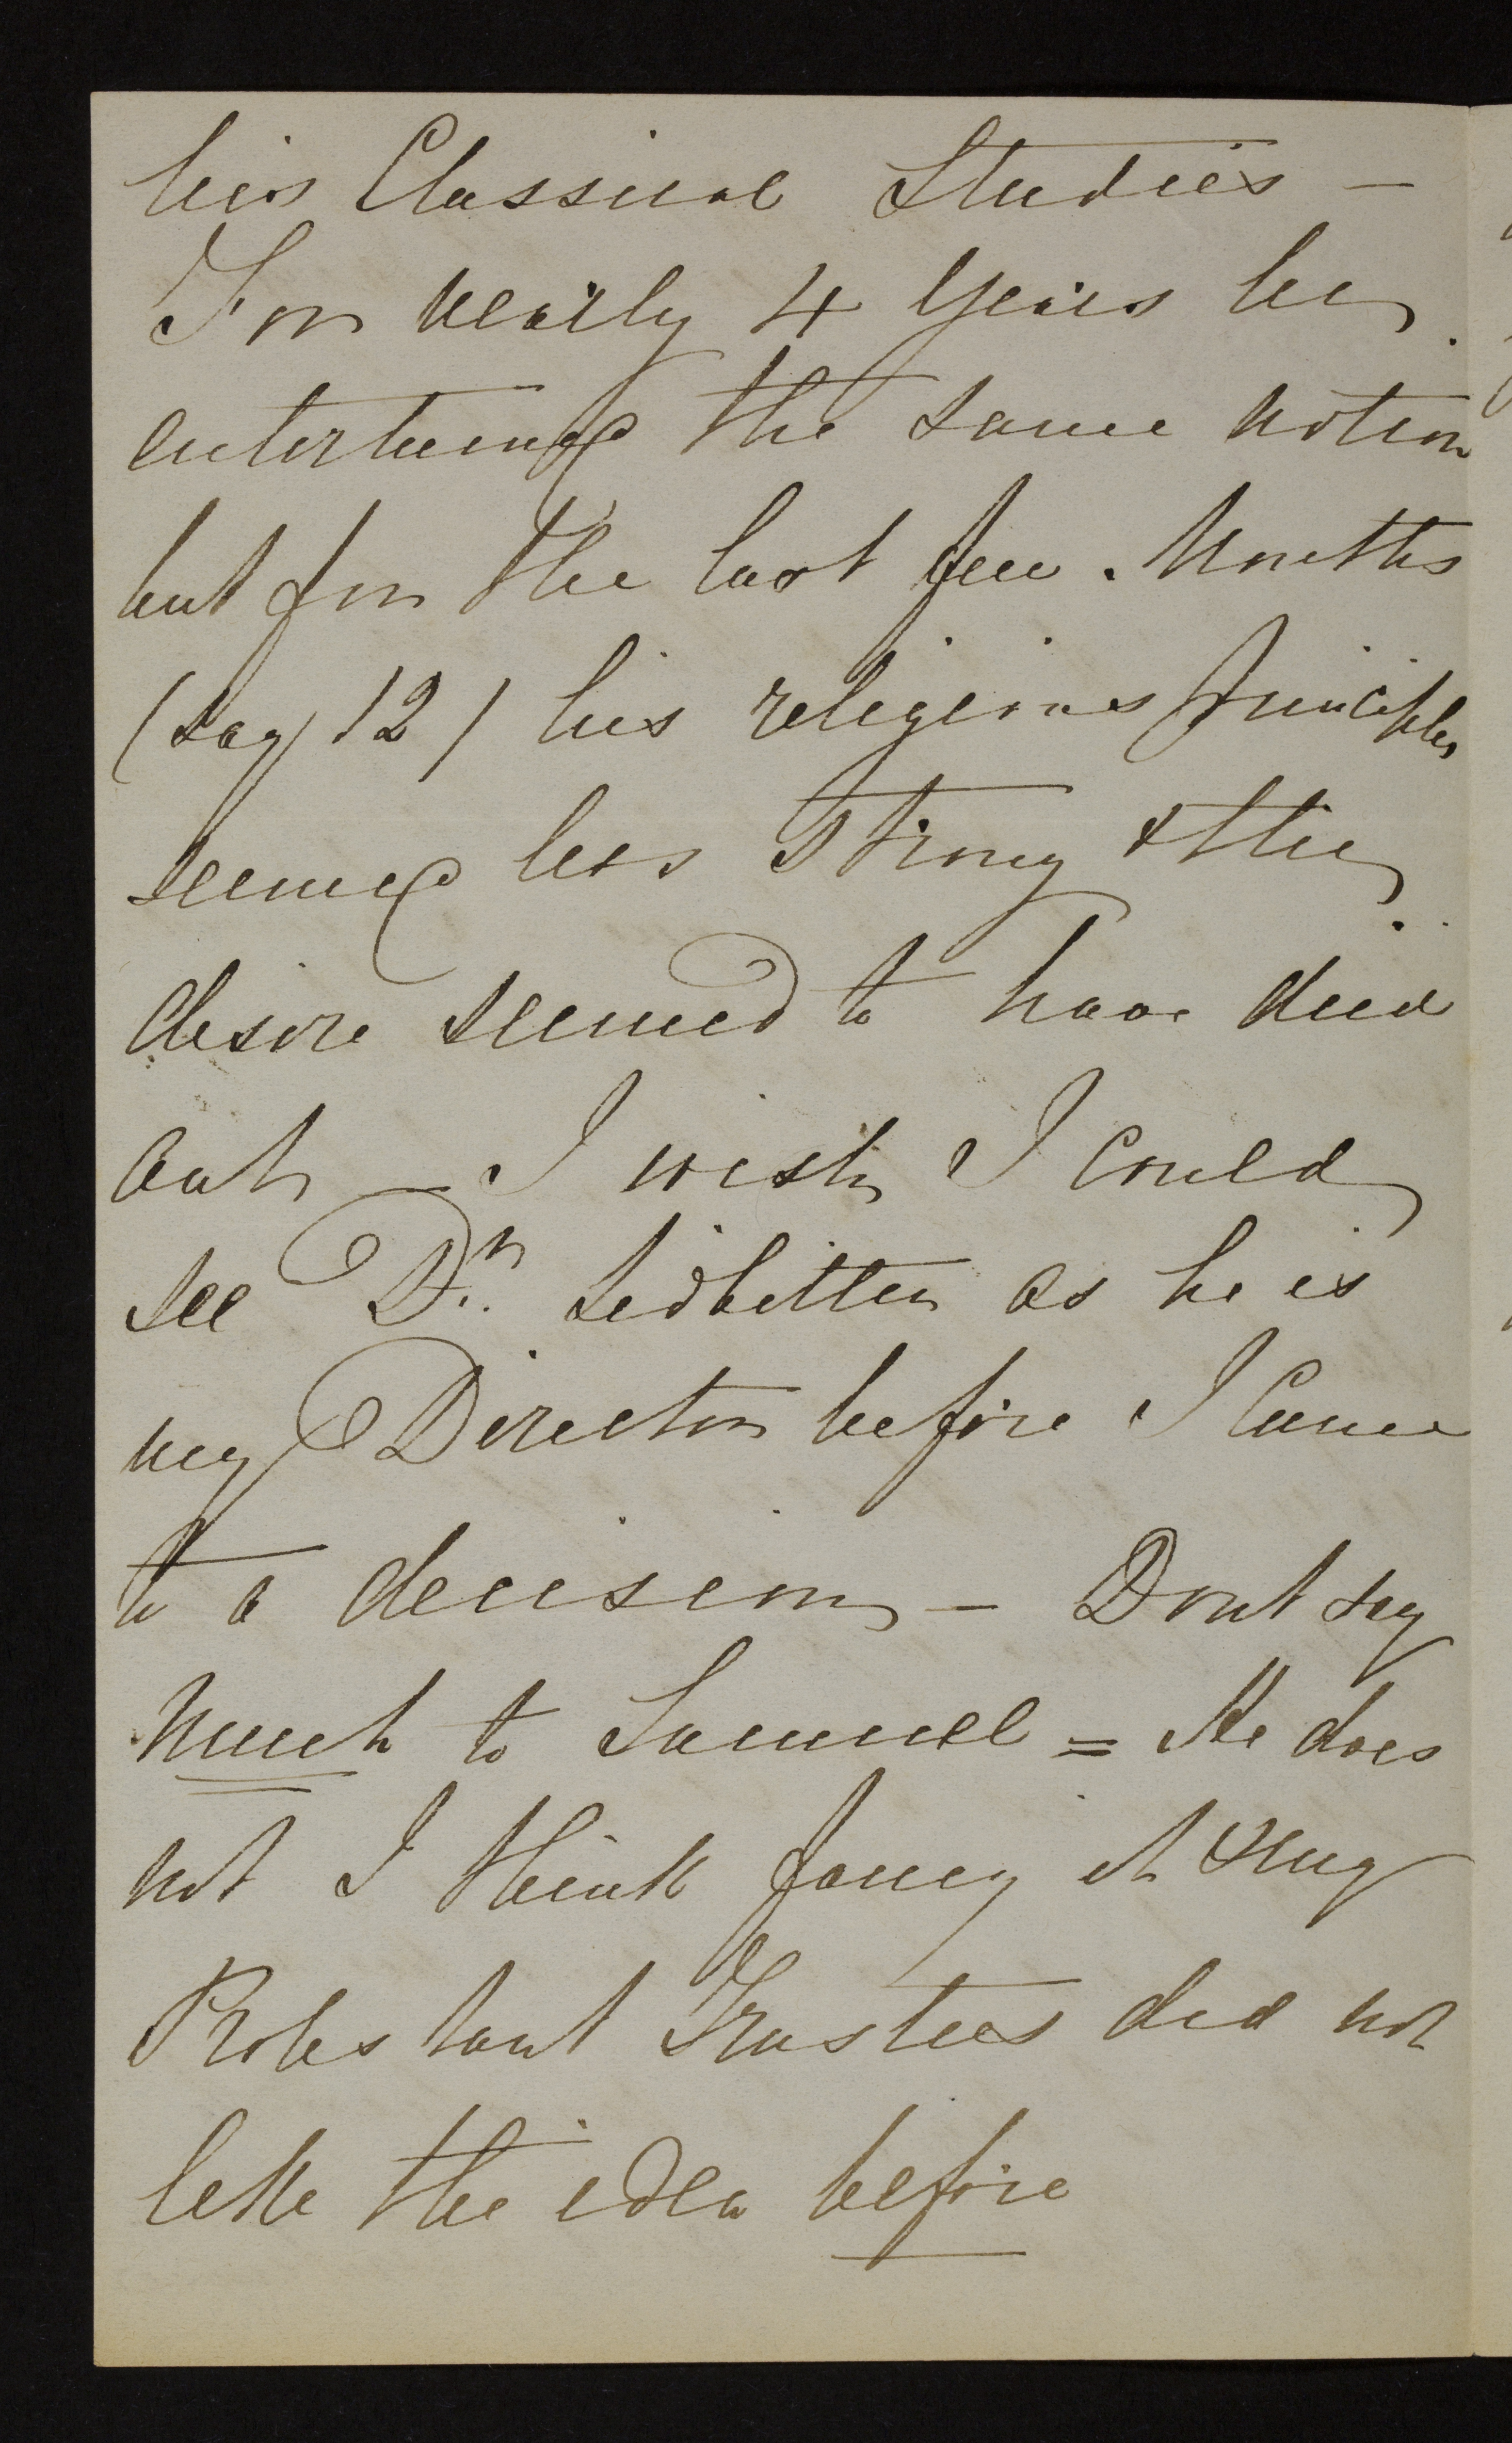 his Classical Studies –
For nearly 4 Years he
entertained the same notion
but for the last few Months
(say 12) his religious principles
seemed less strong & the
desire seemed to have died
out – I wish I could
see Dr. Ledbitter as he is
my Director before I came
to a decision – Dont say
much to Samuel = He does
not I think fancy it & my
Protestant Trustees did not
like the idea before